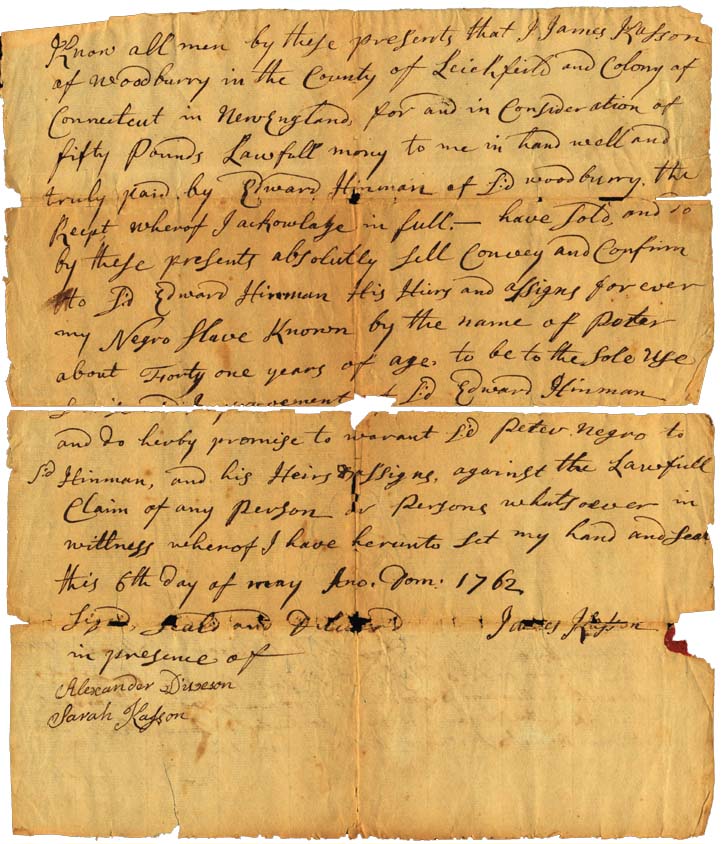 Know all men by these presents that I James Kasson
of Woodburry in the County of Leichfield and Colony of
Connecticut in New England, for and in Consideration of
fifty Pounds Lawfull mony to me in hand well and
truly paid by Edward Hinman of Sd woodburry. the
Recipt wherof I ackowladge in full.— have Sold, and do
by these presents absolutly sell Convey and Confirm
to Sd Edward Hinman His Hiers and assigns for ever
my Negro Slave Known by the name of Peter
about Forty one years of age. to be to the Sole Use
Sd Edward Hinman
and do herby promise to warant Sd Peter Negro to
Sd Hinman, and his Heirs & assigns, against the Lawfull
Claim of any Person or Persons whatsoever in
wittness wherof I have herunto Set my hand and Seal
this 6th day of may Ano. Dom. 1762
Signd, Seald and Deliverd James Kasson
in presence of
Alexander
Sarah Kasson